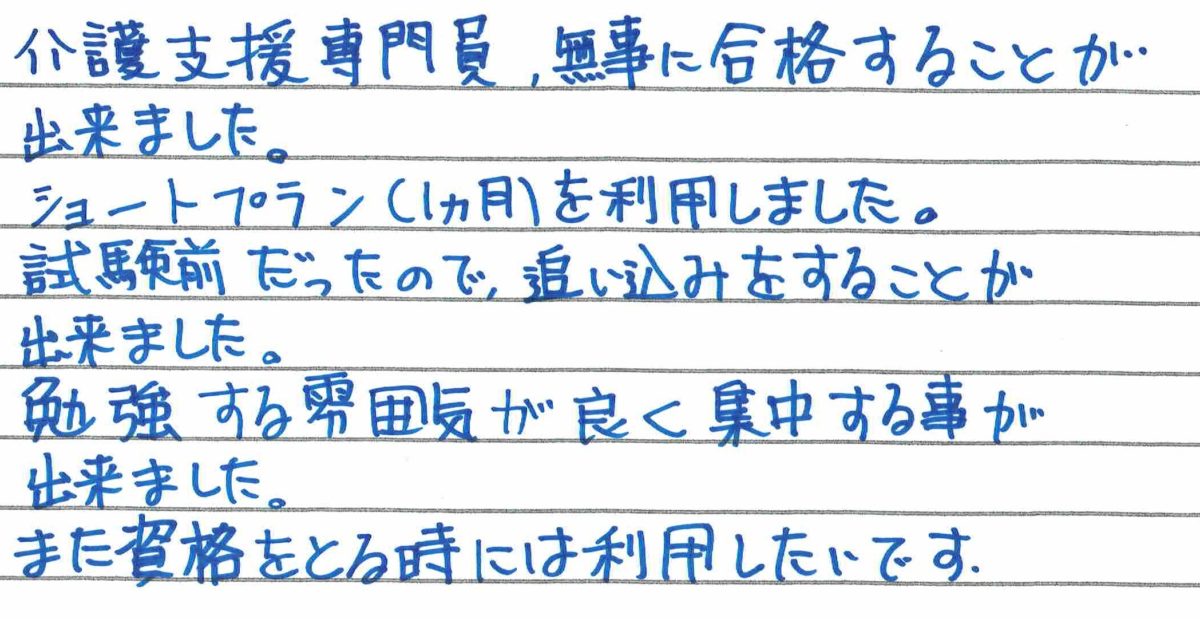 介護支援専門員,無事に合格することが
出来ました。
ショートプラン(1ヵ月)を利用しました。
試験前だったので,追い込みをすることが
出来ました。
勉強する雰囲気が良く集中する事が
出来ました。
また資格をとる時には利用したいです.